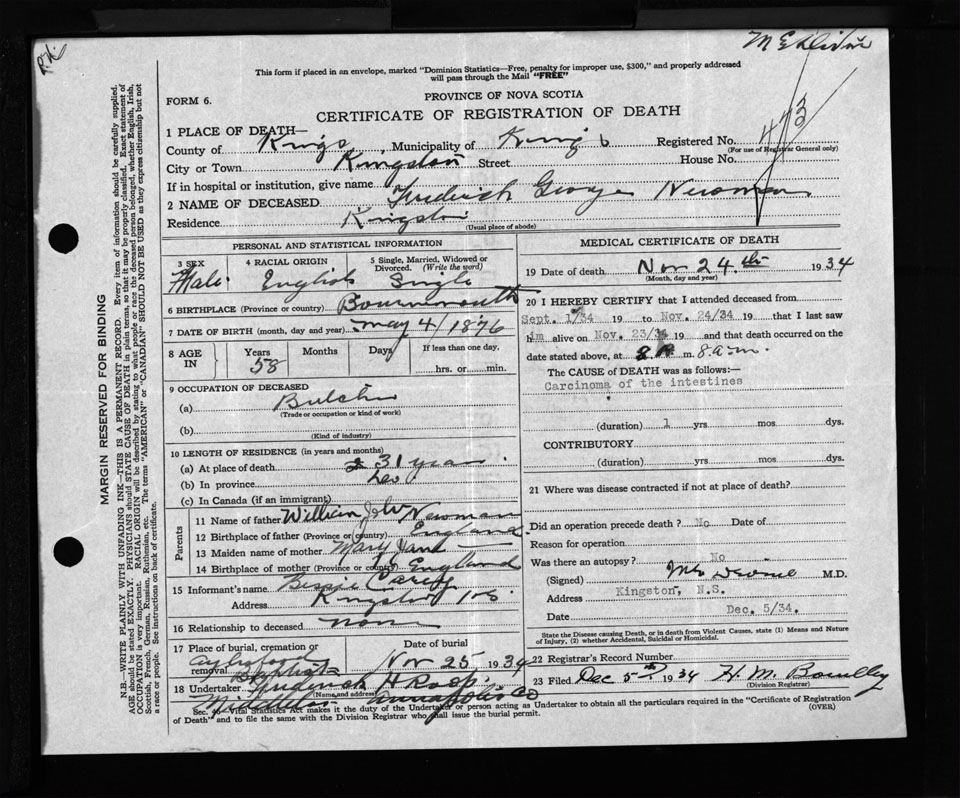 This form if placed in an envelope, marked "Dominion Statistics—Free, penalty for improper use, $300," and properly addressed
will pass through the Mail "FREE"
FORM 6.
PROVINCE OF NOVA SCOTIA
CERTIFICATE OF REGISTRATION OF DEATH
473
1 PLACE OF DEATH—
County of Kings Municipality of Kings Registered No.
(For use of Registrar General only)
City or Town Kingston Street House No.
If in hospital or institution, give name
2 NAME OF DECEASED Frederick George Newman
Residence Kingston
(Usual place of abode)
PERSONAL AND STATISTICAL INFORMATION
3 SEX 4 RACIAL ORIGIN 5 Single, Married, Widowed or
Divorced. (Write the word)
Male English Single
6 BIRTHPLACE (Province or country) Bournmouth
7 DATE OF BIRTH (month, day and year) May 4/1876
8 AGE IN Years Months Days If less than one day.
58 hrs. or min.
9 OCCUPATION OF DECEASED
(a) Butcher
(Trade or occupation or kind of work)
(b)
(Kind of industry)
10 LENGTH OF RESIDENCE (in years and months)
(a) At place of death 31 years
(b) In province
(c) In Canada (if an immigrant)
Parents
11 Name of father William John Newman
12 Birthplace of father (Province or country) England
13 Maiden name of mother Mary Jane
14 Birthplace of mother (Province or country) England
15 Informant's name Bessie Carey
Address Kingston N.S.
16 Relationship to deceased none
17 Place of burial, cremation or Date of burial
removal Aylesford Baptist Nov 25 1934
18 Undertaker Frederick H Roop
(Name and address)
Middleton Annapolis Co
MEDICAL CERTIFICATE OF DEATH
19 Date of death Nov 24.th 1934
(Month, day and year)
20 I HEREBY CERTIFY that I attended deceased from
Sept. 1/34 19 to Nov. 24/34 19 that I last saw
him alive on Nov. 23/34 19 and that death occurred on the
date stated above, at m. 8 a.m.
The CAUSE of DEATH was as follows:
Carcinoma of the intestines
(duration) 1 yrs mos dys.
CONTRIBUTORY
(duration) yrs mos dys.
21 Where was disease contracted if not at place of death?
Did an operation precede death? No Date of
Reason for operation
Was there an autopsy? No
(Signed) M.D.
Address Kingston, N.S.
Date Dec. 5/34.
State the Disease causing Death, or in death from Violent Causes, state (1) Means and Nature
of Injury, (2) whether Accidental, Suicidal or Homicidal.
22 Registrar's Record Number
23 Filed Dec 5th 1934 H. M.
(Division Registrar)
Sec. 46 Vital Statistics Act makes it the duty of the Undertaker or person acting as Undertaker to obtain all the particulars required in the "Certificate of Registration
of Death" and to file the same with the Division Registrar who shall issue the burial permit. (OVER)
MARGIN RESERVED FOR BINDING
N.B.—WRITE PLAINLY WITH UNFADING INK—THIS IS A PERMANENT RECORD. Every item of information should be carefully supplied.
AGE should be stated EXACTLY. PHYSICIANS should STATE CAUSE OF DEATH in plain terms, so that it may be properly classified. Exact statement of
OCCUPATION is very important. RACIAL ORIGIN will be described by stating to what people or race the deceased person belonged, whether English, Irish,
Scottish, French, German, Russian, Ruthenian, etc. The terms "AMERICAN" or "CANADIAN" SHOULD NOT BE USED as they express citizenship but not
a race or people. See instructions on back of certificate.